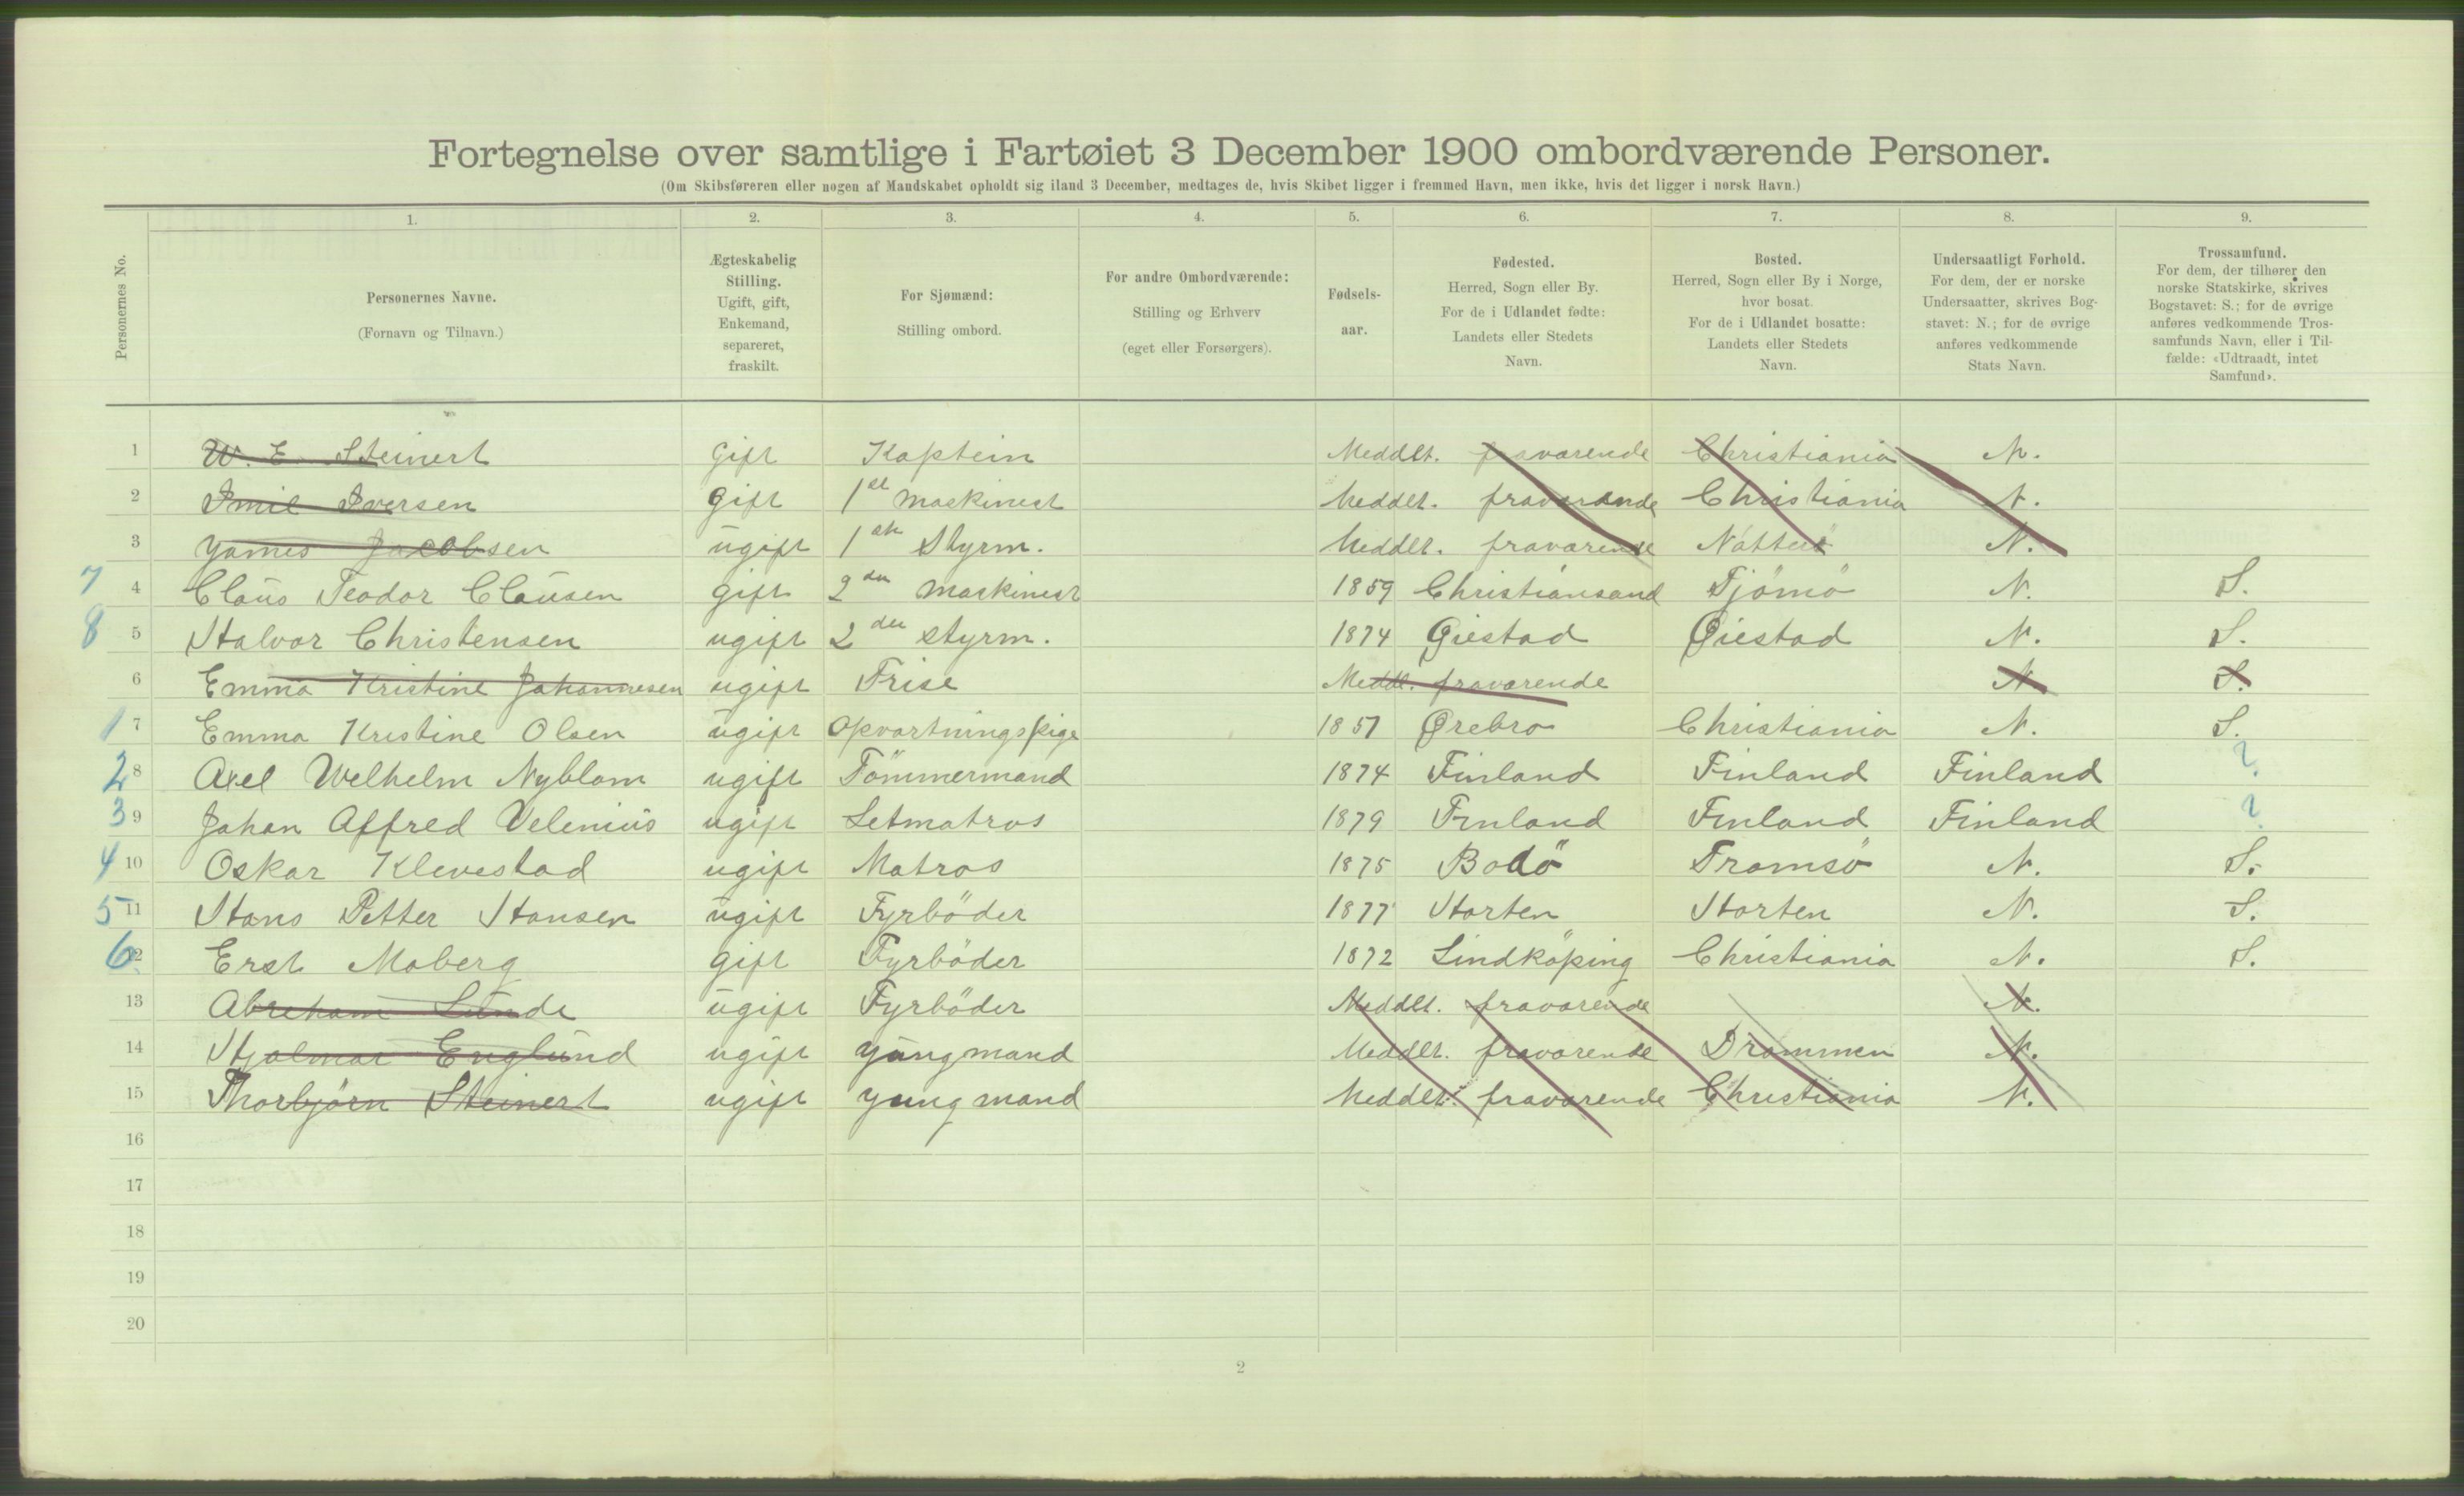 Fortegnelse over samtlige i Fartøiet 3 December 1900 ombordværende Personer.
(Om Skibsføreren eller nogen af Mandskabet opholdt sig iland 3 December, medtages de, hvis Skibet ligger i fremmed Havn, men ikke, hvis det ligger i norsk Havn.)
1. 2. 3. 4. 5. 6. 7. 8. 9.
Personernes No.
Personernes Navne.
(Fornavn og Tilnavn.)
Ægteskabelig
Stilling.
Ugift, gift,
Enkemand,
separeret,
fraskilt.
For Sjømænd:
Stilling ombord.
For andre Ombordværende:
Stilling og Erhverv
(eget eller Forsørgers).
Fødsels-
aar.
Fødested.
Herred, Sogn eller By.
For de i Udlandet fødte:
Landets eller Stedets
Navn.
Bosted.
Herred, Sogn eller By i Norge,
hvor bosat.
For de i Udlandet bosatte:
Landets eller Stedets
Navn.
Undersaatligt Forhold.
For dem, der er norske
Undersaatter, skrives Bog-
stavet: N.; for de øvrige
anføres vedkommende
Stats Navn.
Trossamfund.
For dem, der tilhører den
norske Statskirke, skrives
Bogstavet: S.; for de øvrige
anføres vedkommende Tros-
samfunds Navn, eller i Til-
fælde: «Udtraadt, intet
Samfund».
1 W. E. Steinert gift Kaptein Meddlt. fraværende Christiania N.
2 Imil Iversen gift 1st Maskinest Meddlt. fraværende Christiania N.
3 Yames Jacobsen ugift 1ste Styrm. Meddlt. fraværende N.
7 4 Claus Teodor Clausen gift 2den Maskinest 1859 Christiansand Tjömö N. S.
8 5 Halvor Christensen ugift 2den Styrm. 1874 Øiestad Øiestad N. S.
6 Emma Kristine Johannesen ugift Trise Meddl. fraværende N S.
1 7 Emma Kristine Olsen ugift Opvartningspige 1851 Ørebro Christiania N. S.
2 8 Axel Welhelm Nyblom ugift Tömmermand 1874 Finland Finland Finland ?
3 9 Johan Alfred Velenius ugift Letmatros 1879 Finland Finland Finland ?
4 10 Oskar Klevestad ugift Matros 1875 Bodö Tromsö N. S.
5 11 Hans Petter Hansen ugift Fyrböder 1877 Horten Horten N. S.
6 12 Erst Moberg gift Fyrböder 1872 Lindköping Christiania N. S.
13 Abreham Lunde ugift Fyrböder Meddlt. fraværende N.
14 Hjalmar Englund ugift yungmand Meddlt. fraværende Drammen N.
15 Thorbjörn Steinert ugift yungmand Meddlt. fraværende Christiania N.
16
17
18
19
20
2